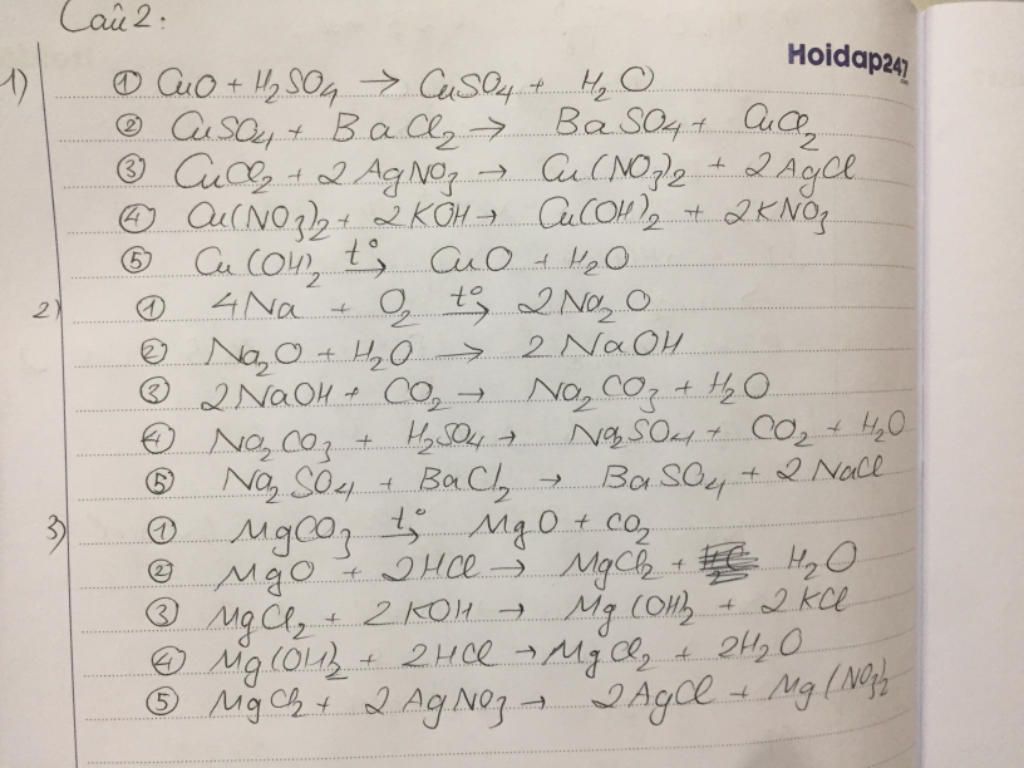 Câu 2:
Hoidap247
1) ① CuO + H₂SO₄ → CuSO₄ + H₂O
② CuSO₄ + BaCl₂ → BaSO₄ + CuCl₂
③ CuCl₂ + 2AgNO₃ → Cu(NO₃)₂ + 2AgCl
④ Cu(NO₃)₂ + 2KOH → Cu(OH)₂ + 2KNO₃
⑤ Cu(OH)₂ t°→ CuO + H₂O
2) ① 4Na + O₂ t°→ 2Na₂O
② Na₂O + H₂O → 2NaOH
③ 2NaOH + CO₂ → Na₂CO₃ + H₂O
④ Na₂CO₃ + H₂SO₄ → Na₂SO₄ + CO₂ + H₂O
⑤ Na₂SO₄ + BaCl₂ → BaSO₄ + 2NaCl
3) ① MgCO₃ t°→ MgO + CO₂
② MgO + 2HCl → MgCl₂ + H₂O
③ MgCl₂ + 2KOH → Mg(OH)₂ + 2KCl
④ Mg(OH)₂ + 2HCl → MgCl₂ + 2H₂O
⑤ MgCl₂ + 2AgNO₃ → 2AgCl + Mg(NO₃)₂